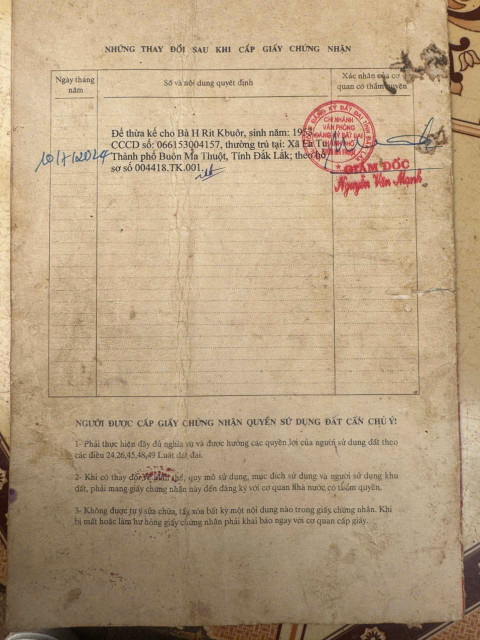 NHỮNG THAY ĐỔI SAU KHI CẤP GIẤY CHỨNG NHẬN
Ngày tháng năm
Số và nội dung quyết định
Xác nhận của cơ quan có thẩm quyền
10/7/2024
Để thừa kế cho Bà H Rit Kbuôr, sinh năm: 1953
CCCD số: 066153004157, thường trú tại: Xã Ea Tu
Thành phố Buôn Ma Thuột, Tỉnh Đắk Lắk; theo hồ
sơ số 004418.TK.001
CHI NHÁNH
VĂN PHÒNG
ĐĂNG KÝ ĐẤT ĐAI
GIÁM ĐỐC
Nguyễn Văn Mạnh
NGƯỜI ĐƯỢC CẤP GIẤY CHỨNG NHẬN QUYỀN SỬ DỤNG ĐẤT CẦN CHÚ Ý!
1- Phải thực hiện đầy đủ nghĩa vụ và được hưởng các quyền lợi của người sử dụng đất theo
các điều 24,26,45,48,49 Luật đất đai.
2- Khi có thay đổi về hình thể, quy mô sử dụng, mục đích sử dụng và người sử dụng khu
đất, phải mang giấy chứng nhận này đến đăng ký với cơ quan Nhà nước có thẩm quyền.
3- Không được tự ý sửa chữa, tẩy xóa bất kỳ một nội dung nào trong giấy chứng nhận. Khi
bị mất hoặc làm hư hỏng giấy chứng nhận phải khai báo ngay với cơ quan cấp giấy.